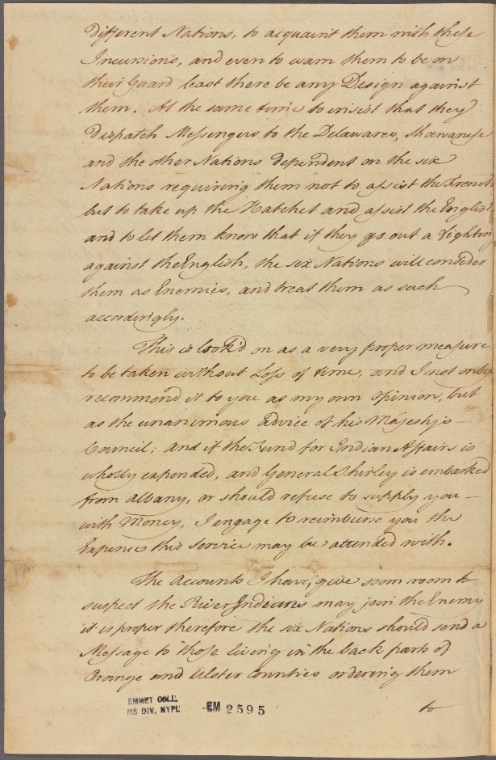 different Nations, to acquaint them with these
Incursions, and even to warn them to be on
their Guard least there be any Design against
them. At the same time to insist that they
dispatch Messengers to the Delawares, Shawanese
and the other Nations dependent on the six
Nations requiring them not to assist the French
but to take up the Hatchet and assist the English,
and to let them know that if they go out a fighting
against the English, the six Nations will consider
them as Enemies, and treat them as such
accordingly.
This is look'd on as a very proper measure
to be taken without Loss of time, and I not only
recommend it to you as my own opinion, but
as the unanimous advice of his Majesty's
Council; and if the Fund for Indian Affairs is
wholly expended, and General Shirley is embarked
from Albany, or should refuse to supply you
with Money, I engage to reimburse you the
Expence this Service may be attended with.
The Accounts I have, give some room to
suspect the River Indians may join the Enemy
it is proper therefore the six Nations should send a
Message to those living in the back parts of
Orange and Ulster Counties ordering them
to
EMMET COLL.
MS DIV. NYPL
EM 2595